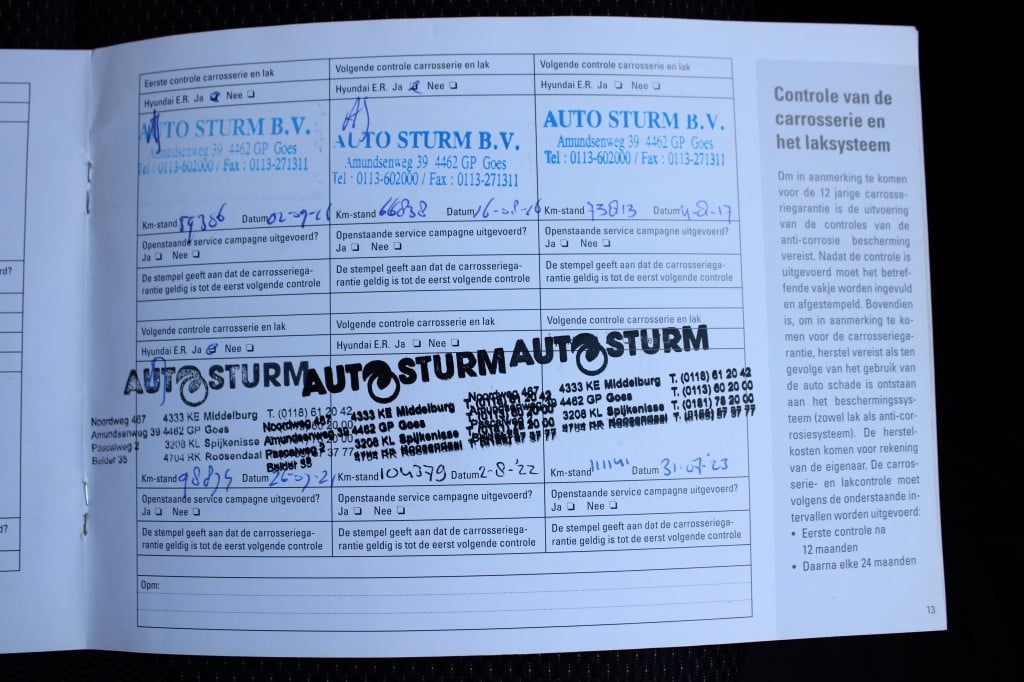 Eerste controle carrosserie en lak
Hyundai E.R. Ja ☑ Nee ❏
AUTO STURM B.V.
Amundsenweg 39 4462 GP Goes
Tel : 0113-602000 / Fax : 0113-271311
Km-stand 59306 Datum
Openstaande service campagne uitgevoerd?
Ja ❏ Nee ❏
De stempel geeft aan dat de carrosseriega-
rantie geldig is tot de eerst volgende controle
Volgende controle carrosserie en lak
Hyundai E.R. Ja ☑ Nee ❏
AUTO STURM B.V.
Amundsenweg 39 4462 GP Goes
Tel : 0113-602000 / Fax : 0113-271311
Km-stand 66838 Datum 16-08-16
Openstaande service campagne uitgevoerd?
Ja ❏ Nee ❏
De stempel geeft aan dat de carrosseriega-
rantie geldig is tot de eerst volgende controle
Volgende controle carrosserie en lak
Hyundai E.R. Ja ❏ Nee ❏
AUTO STURM B.V.
Amundsenweg 39 4462 GP Goes
Tel : 0113-602000 / Fax : 0113-271311
Km-stand 73813 Datum 4-8-17
Openstaande service campagne uitgevoerd?
Ja ❏ Nee ❏
De stempel geeft aan dat de carrosseriega-
rantie geldig is tot de eerst volgende controle
Volgende controle carrosserie en lak
Hyundai E.R. Ja ☑ Nee ❏
AUTO STURM
Noordweg 467 4333 KE Middelburg T. (0118) 61 20 42
Amundsenweg 39 4462 GP Goes
Pascalweg 2 3208 KL Spijkenisse
Belder 35 4704 RK Roosendaal
Km-stand Datum
Openstaande service campagne uitgevoerd?
Ja ❏ Nee ❏
De stempel geeft aan dat de carrosseriega-
rantie geldig is tot de eerst volgende controle
Volgende controle carrosserie en lak
Hyundai E.R. Ja ❏ Nee ❏
AUTO STURM
Noordweg 467 4333 KE Middelburg
Amundsenweg 39 4462 GP Goes
Pascalweg 2 3208 KL Spijkenisse
Belder 35 4704 RK Roosendaal
Km-stand 104379 Datum 2-8-'22
Openstaande service campagne uitgevoerd?
Ja ❏ Nee ❏
De stempel geeft aan dat de carrosseriega-
rantie geldig is tot de eerst volgende controle
Volgende controle carrosserie en lak
AUTO STURM
Noordweg 467 4333 KE Middelburg T. (0118) 61 20 42
4462 GP Goes T. (0113) 60 20 00
3208 KL Spijkenisse T. (0181) 76 20 00
4704 RK Roosendaal
Km-stand 111141 Datum 31-07-'23
Openstaande service campagne uitgevoerd?
Ja ❏ Nee ❏
De stempel geeft aan dat de carrosseriega-
rantie geldig is tot de eerst volgende controle
Opm:
Controle van de
carrosserie en
het laksysteem
Om in aanmerking te komen
voor de 12 jarige carrosse-
riegarantie is de uitvoering
van de controles van de
anti-corrosie bescherming
vereist. Nadat de controle is
uitgevoerd moet het betref-
fende vakje worden ingevuld
en afgestempeld. Bovendien
is, om in aanmerking te ko-
men voor de carrosseriega-
rantie, herstel vereist als ten
gevolge van het gebruik van
de auto schade is ontstaan
aan het beschermingssys-
teem (zowel lak als anti-cor-
rosiesysteem). De herstel-
kosten komen voor rekening
van de eigenaar. De carros-
serie- en lakcontrole moet
volgens de onderstaande in-
tervallen worden uitgevoerd:
• Eerste controle na
12 maanden
• Daarna elke 24 maanden
13